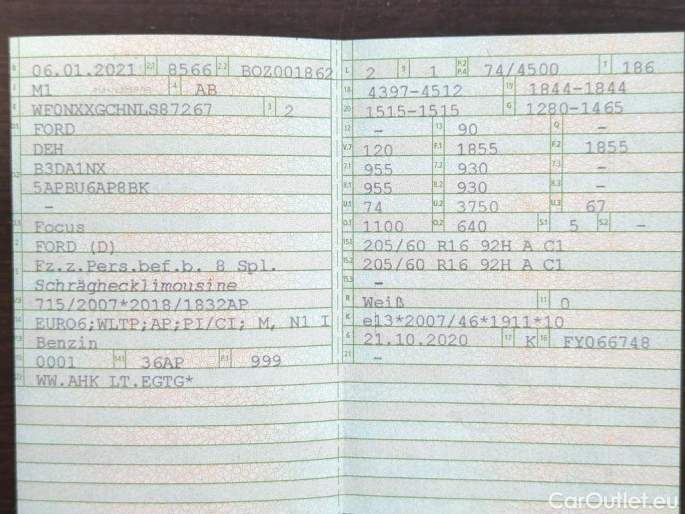 B 06.01.2021 2.1 8566 2.2 BOZ001862
J M1 4 AB
E WF0NXXGCHNLS87267 3 2
D.1 FORD
DEH
D.2 B3DA1NX
5APBU6AP8BK
-
D.3 Focus
2 FORD (D)
5 Fz.z.Pers.bef.b. 8 Spl.
Schräghecklimousine
V.9 715/2007*2018/1832AP
14 EURO6;WLTP;AP;PI/CI; M, N1 I
P.3 Benzin
10 0001 14.1 36AP P.1 999
22 WW.AHK LT.EGTG*
L 2 9 1 P.2 P.4 74/4500 T 186
18 4397-4512 19 1844-1844
20 1515-1515 G 1280-1465
12 - 13 90 Q -
V.7 120 F.1 1855 F.2 1855
7.1 955 7.2 930 7.3 -
8.1 955 8.2 930 8.3 -
U.1 74 U.2 3750 U.3 67
O.1 1100 O.2 640 S.1 5 S.2 -
15.1 205/60 R16 92H A C1
15.2 205/60 R16 92H A C1
15.3 -
R Weiß 11 0
K e13*2007/46*1911*10
6 21.10.2020 17 K 16 FY066748
21 -
CarOutlet.eu